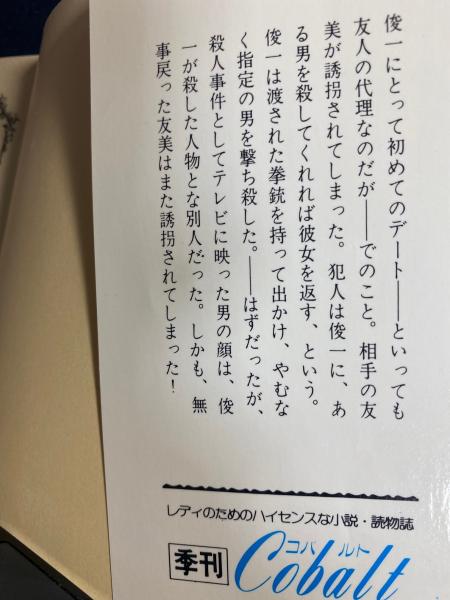 俊一にとって初めてのデート――といっても
友人の代理なのだが――でのこと。相手の友
美が誘拐されてしまった。犯人は俊一に、あ
る男を殺してくれれば彼女を返す、という。
俊一は渡された拳銃を持って出かけ、やむな
く指定の男を撃ち殺した。――はずだったが、
殺人事件としてテレビに映った男の顔は、俊
一が殺した人物とな別人だった。しかも、無
事戻った友美はまた誘拐されてしまった！
レディのためのハイセンスな小説・読物誌
季刊
コバルト
Cobalt